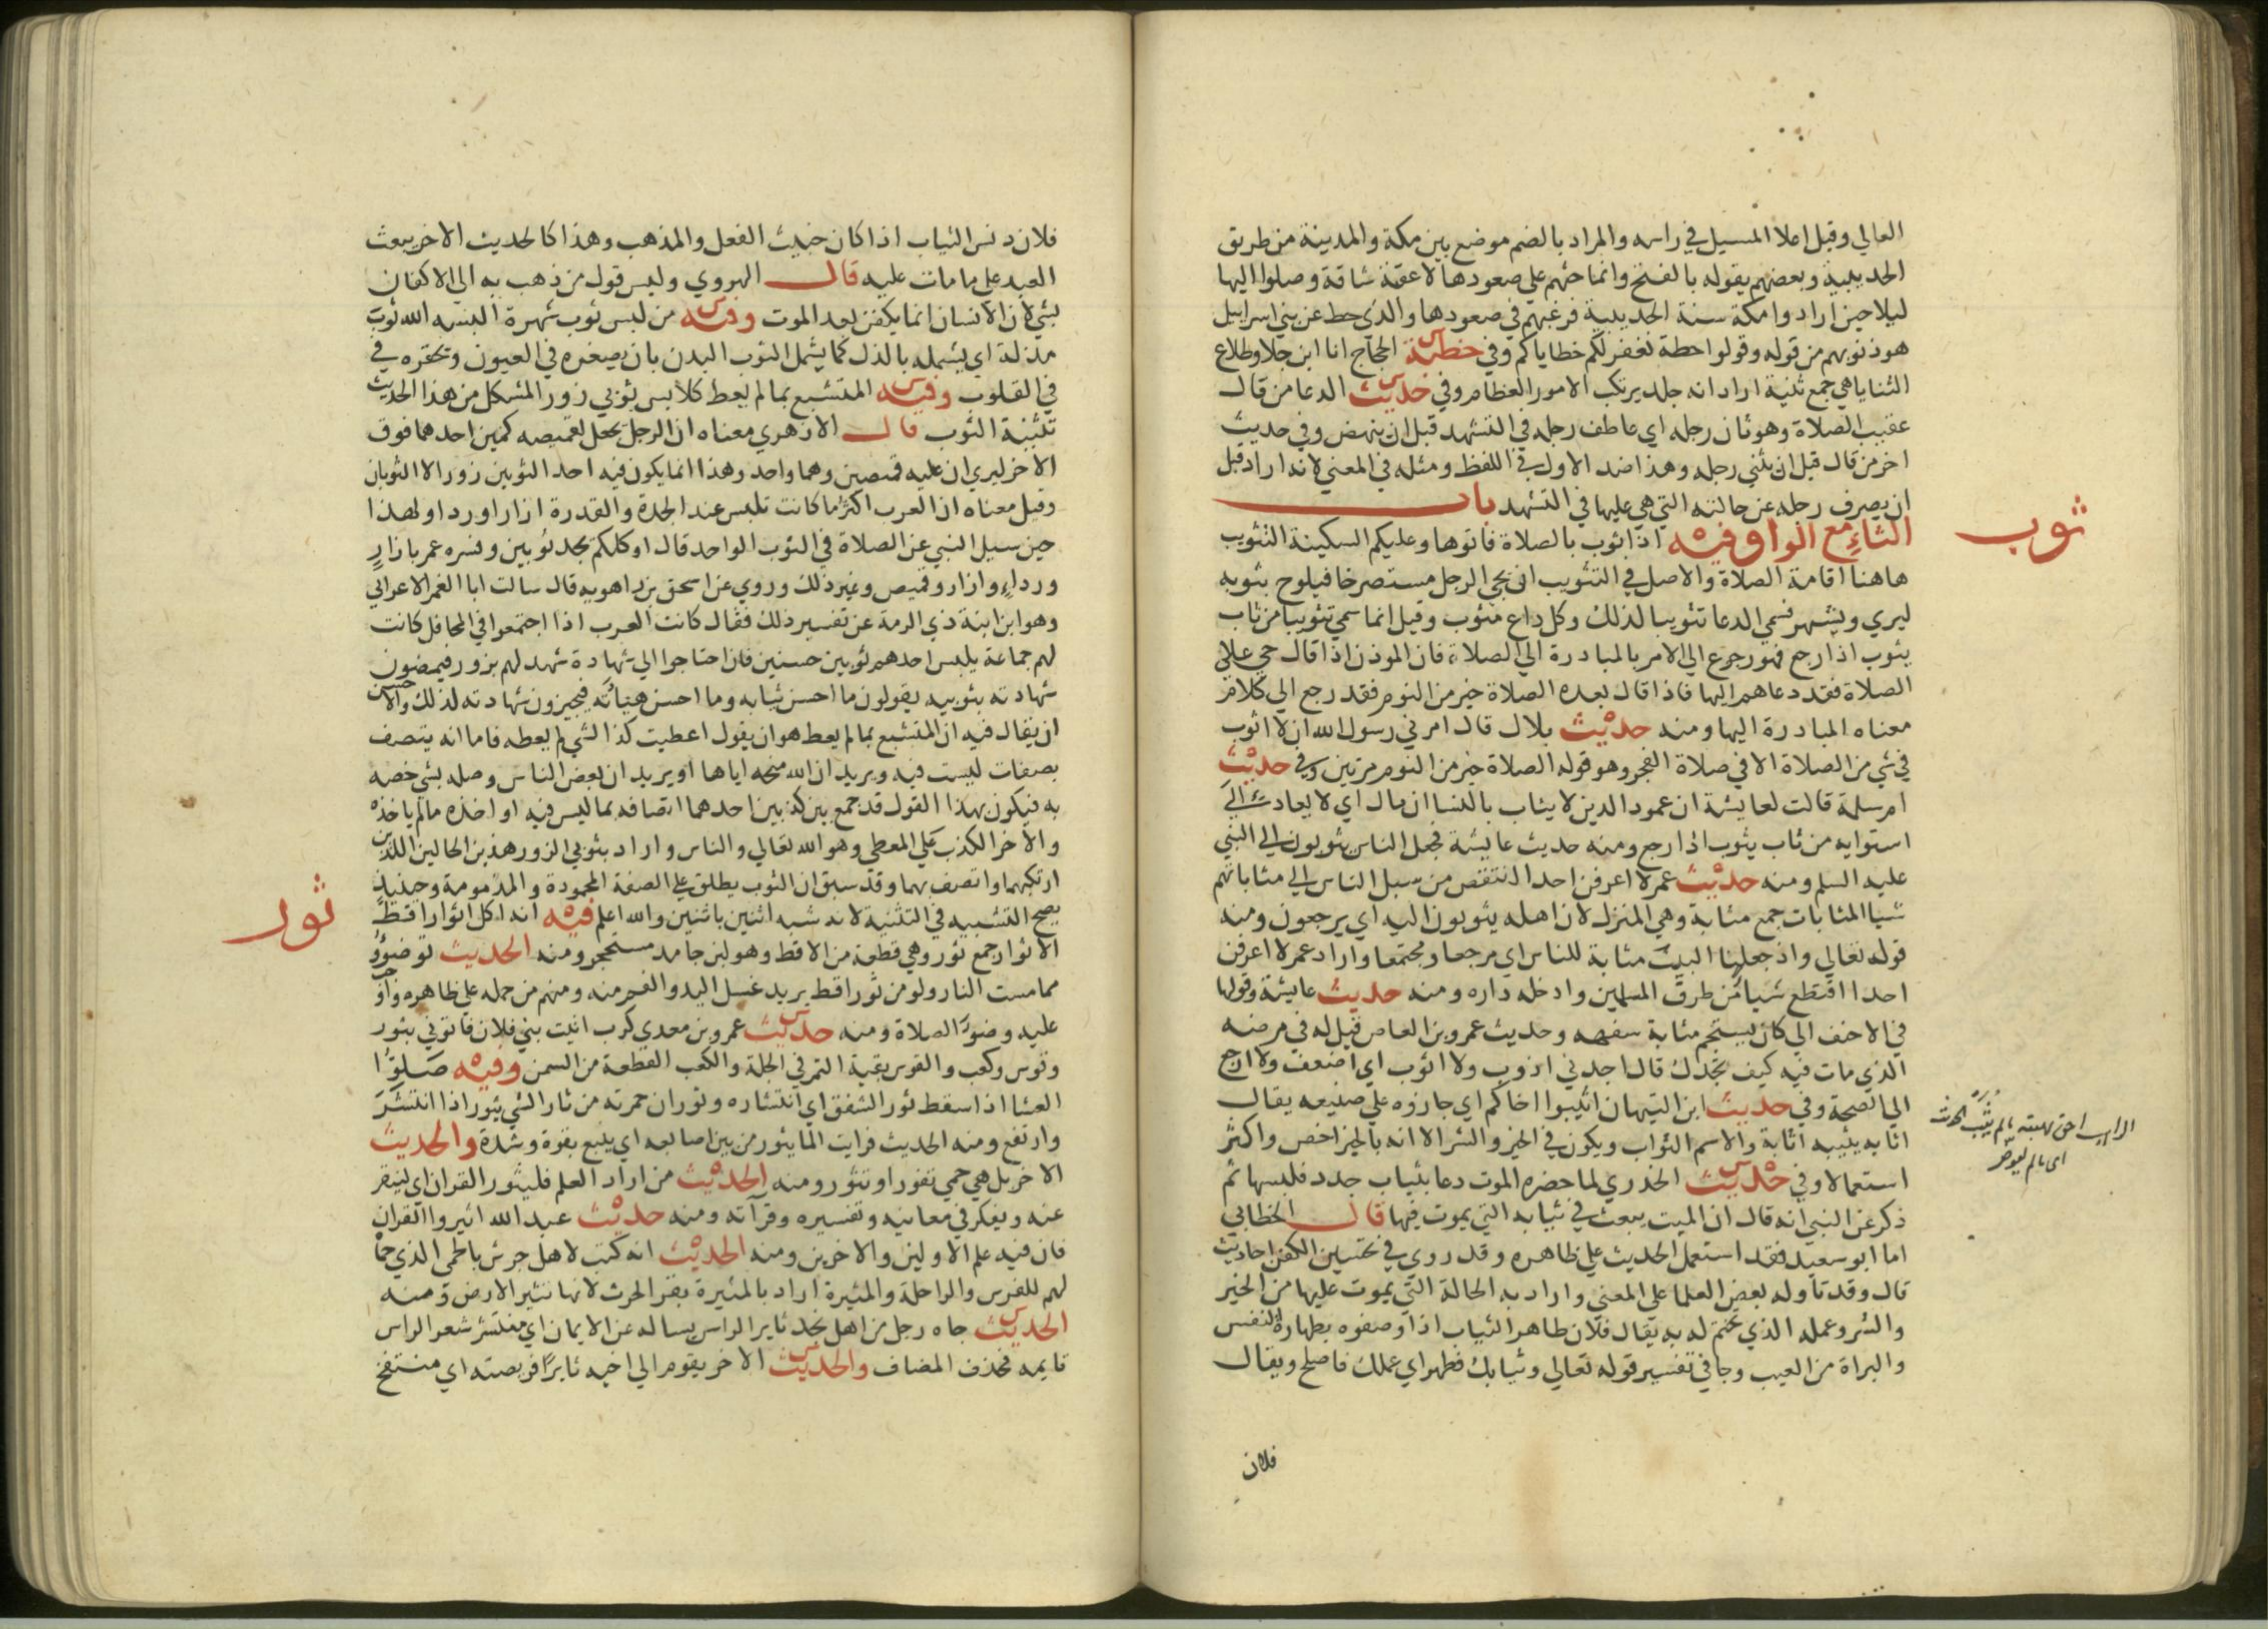 العالي وقيل اعلا المسيل في راسه والمراد بالضم موضع بين مكة والمدينة من طريق
الحديبية وبعضهم يقوله بالفتح وانما حثهم على صعودها لانها عقبة شاقة وصلوا اليها
ليلا حين ارادوا مكة سنة الحديبية فرغبهم في صعودها والذي حط عن بني اسرايل
هو ذنوبهم من قوله وقولوا حطة نغفر لكم خطاياكم وفي خطبة الحجاج انا ابن جلا وطلاع
الثنايا هي جمع ثنية اراد انه جلد يرتكب الامور العظام وفي حديث الدعا من قال
عقيب الصلاة وهو ثان رجله اي عاطف رجله في التشهد قبل ان ينهض وفي حديث
اخر من قال قبل ان يثني رجله وهذا ضد الاول في اللفظ ومثله في المعني لانه اراد قبل
ان يصرف رجله عن حالته التي هي عليها في التشهد باب
ثوب
الثاء مع الواو فيه اذا ثوب بالصلاة فاتوها وعليكم السكينة التثويب
هاهنا اقامة الصلاة والاصل في التثويب ان يجي الرجل مستصرخا فيلوح بثوبه
ليري ويشهر فسمي الدعا تثويبا لذلك وكل داع مثوب وقيل انما سمي تثويبا من ثاب
يثوب اذا رجع فهو رجوع الي الامر بالمبادرة الي الصلاة فان الموذن اذا قال حي علي
الصلاة فقد دعاهم اليها فاذا قال بعده الصلاة خير من النوم فقد رجع الي كلام
معناه المبادرة اليها ومنه حديث بلال قال امرني رسول الله ان لا اثوب
في شي من الصلاة الا في صلاة الفجر وهو قوله الصلاة خير من النوم مرتين وفي حديث
ام سلمة قالت لعايشة ان عمود الدين لا يثاب بالنسا ان مال اي لا يعاد الي
استوايه من ثاب يثوب اذا رجع ومنه حديث عايشة فجعل الناس يثوبون الي النبي
عليه السلم ومنه حديث عمر لا اعرفن احدا انتقص من سبل الناس الي مثاباتهم
شيا المثابات جمع مثابة وهي المنزل لان اهله يثوبون اليه اي يرجعون ومنه
قوله تعالي واذ جعلنا البيت مثابة للناس اي مرجعا ومجتمعا واراد عمر لا اعرفن
احدا اقتطع شيا من طرق المسلمين وادخله داره ومنه حديث عايشة وقولها
في الاحنف الي كان يستجم مثابة سفهه وحديث عمرو بن العاص قيل له في مرضه
الذي مات فيه كيف تجدك قال اجدني اذوب ولا اثوب اي اضعف ولا ارجع
الي الصحة وفي حديث ابن التيهان اثيبوا اخاكم اي جازوه علي صنيعه يقال
اثابه يثيبه اثابة والاسم الثواب ويكون في الخير والشر الا انه بالخير اخص واكثر
استعمالا وفي حديث الخدري لما حضره الموت دعا بثياب جدد فلبسها ثم
ذكر عن النبي انه قال ان الميت يبعث في ثيابه التي يموت فيها قال الخطابي
اما ابو سعيد فقد استعمل الحديث علي ظاهره وقد روي في تحسين الكفن احاديث
قال وقد تاوله بعض العلما علي المعني واراد به الحالة التي يموت عليها من الخير
والشر وعمله الذي يختم له به يقال فلان طاهر الثياب اذا وصفوه بطهارة النفس
والبراة من العيب وجا في تفسير قوله تعالي وثيابك فطهر اي عملك فاصلح ويقال
فلان
فلان دنس الثياب اذا كان خبيث الفعل والمذهب وهذا كالحديث الاخر يبعث
العبد علي ما مات عليه قال الهروي وليس قول من ذهب به الي الاكفان
بشي لان الانسان انما يكفن بعد الموت وفيه من لبس ثوب شهرة البسه الله ثوب
مذلة اي يشمله بالذل كما يشمل الثوب البدن بان يصغره في العيون وتحقره في
في القلوب وفيه المتشبع بما لم يعط كلابس ثوبي زور المشكل من هذا الحديث
تثنية الثوب قال الازهري معناه ان الرجل يجعل لقميصه كمين احدهما فوق
الاخر ليري ان عليه قميصين وهما واحد وهذا انما يكون فيه احد الثوبين زورا لا الثوبان
وقيل معناه ان العرب اكثر ما كانت تلبس عند الجدة والقدرة ازارا وردا ولهذا
حين سيل النبي عن الصلاة في الثوب الواحد قال اوكلكم يجد ثوبين وفسره عمر بازار
ورداء وازار وقميص وغير ذلك وروي عن اسحق بن راهويه قال سالت ابا الغمر الاعرابي
وهو ابن ابنة ذي الرمة عن تفسير ذلك فقال كانت العرب اذا اجتمعوا في المحافل كانت
لهم جماعة يلبس احدهم ثوبين حسنين فان احتاجوا الي شهادة شهد لهم بزور فيمضون
شهادته بثوبيه يقولون ما احسن ثيابه وما احسن هيئاته فيجيزون شهادته لذلك والاحسن
ان يقال فيه ان المتشبع بما لم يعط هو ان يقول اعطيت كذا لشي لم يعطه فاما انه يتصف
بصفات ليست فيه ويريد ان الله منحه اياها او يريد ان بعض الناس وصله بشي خصه
به فيكون بهذا القول قد جمع بين كذبين احدهما اتصافه بما ليس فيه او اخذه ما لم ياخذه
والاخر الكذب علي المعطي وهو الله تعالي والناس واراد بثوبي الزور هذين الحالين اللذين
ارتكبهما واتصف بهما وقد سبق ان الثوب يطلق علي الصفة المحمودة والمذمومة وحينيذ
ثور
يصح التشبيه في التثنية لانه شبه اثنين باثنين والله اعلم فيه انه اكل اثوار اقط
الاثوار جمع ثور وهي قطعة من الاقط وهو لبن جامد مستحجر ومنه الحديث توضؤوا
مما مست النار ولو من ثور اقط يريد غسل اليد والفم منه ومنهم من حمله علي ظاهره واوجب
عليه وضوء الصلاة ومنه حديث عمرو بن معدي كرب اتيت بني فلان فاتوني بثور
وقوس وكعب والقوس بقية التمر في الجلة والكعب القطعة من السمن وفيه صلوا
العشا اذا سقط ثور الشفق اي انتشاره وثوران حمرته من ثار الشي يثور اذا انتشر
وارتفع ومنه الحديث فرايت الما يثور من بين اصابعه اي ينبع بقوة وشدة والحديث
الاخر بل هي حمي تفور او تثور ومنه الحديث من اراد العلم فليثور القران اي لينقر
عنه ويفكر في معانيه وتفسيره وقرآته ومنه حديث عبد الله اثيروا القران
فان فيه علم الاولين والاخرين ومنه الحديث انه كتب لاهل جرش بالحمي الذي حماه
لهم للفرس والراحلة والمثيرة اراد بالمثيرة بقر الحرث لانها تثير الارض ومنه
الحديث جاه رجل من اهل نجد ثاير الراس يساله عن الايمان اي منتشر شعر الراس
قايمه فحذف المضاف والحديث الاخر يقوم الي اخيه ثايرا فريصته اي منتفخ